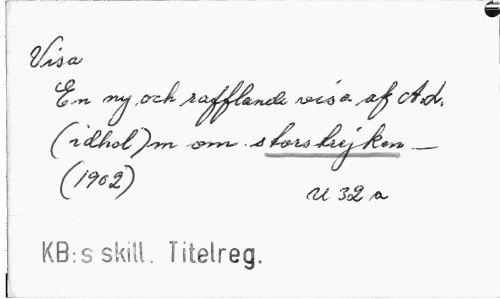 Visa
En ny och rafflande visa af A.L.
(idhol)m om storstrejken —
(1902)
U 32 a
KB:s skill. Titelreg.